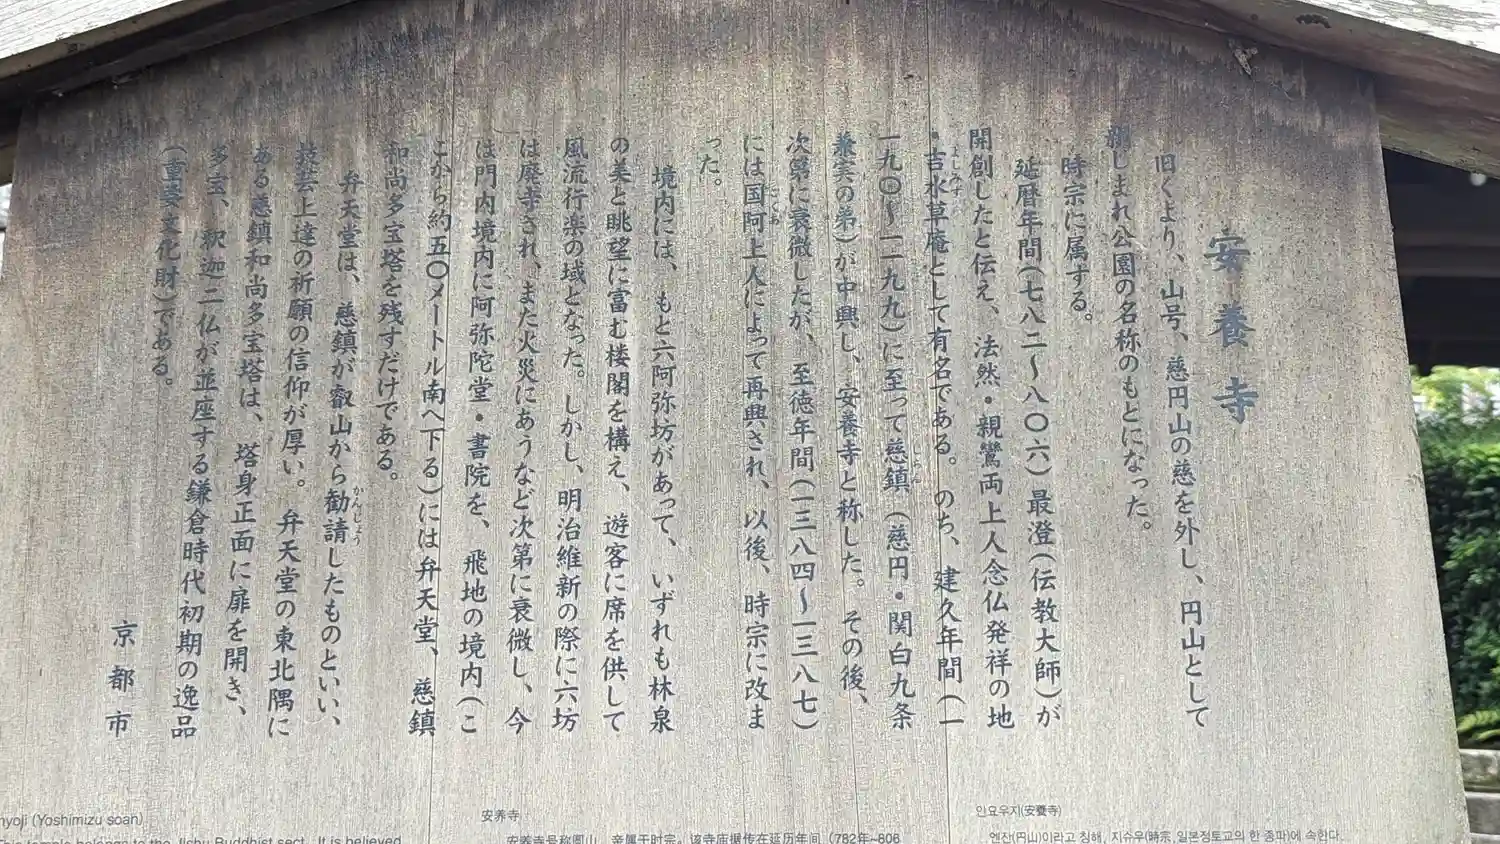 安養寺
旧くより、山号、慈円山の慈を外し、円山として
親しまれ公園の名称のもとになった。
時宗に属する。
延暦年間(七八二〜八〇六)最澄(伝教大師)が
開創したと伝え、法然・親鸞両上人念仏発祥の地
・吉水草庵として有名である。のち、建久年間(一
よしみず
一九〇〜一一九九)に至って慈鎮(慈円・関白九条
兼実の弟)が中興し、安養寺と称した。その後、
次第に衰微したが、至徳年間(一三八四〜一三八七)
には国阿上人によって再興され、以後、時宗に改ま
った。
境内には、もと六阿弥坊があって、いずれも林泉
の美と眺望に富む楼閣を構え、遊客に席を供して
風流行楽の域となった。しかし、明治維新の際に六坊
は廃寺され、また火災にあうなど次第に衰微し、今
は門内境内に阿弥陀堂・書院を、飛地の境内(こ
こから約五〇メートル南へ下る)には弁天堂、慈鎮
和尚多宝塔を残すだけである。
弁天堂は、慈鎮が叡山から勧請したものといい、
かんじょう
技芸上達の祈願の信仰が厚い。弁天堂の東北隅に
ある慈鎮和尚多宝塔は、塔身正面に扉を開き、
多宝、釈迦二仏が並座する鎌倉時代初期の逸品
(重要文化財)である。
京都市
nyoji (Yoshimizu soan)
This temple belongs to the Jishu Buddhist sect. It is believed
安养寺
安养寺号称圆山，亲属于时宗。该寺庙据传在延历年间（782年~806
안요우지(安養寺)
엔잔(円山)이라고 칭해, 지슈우(時宗, 일본정토교의 한 종파)에 속한다.